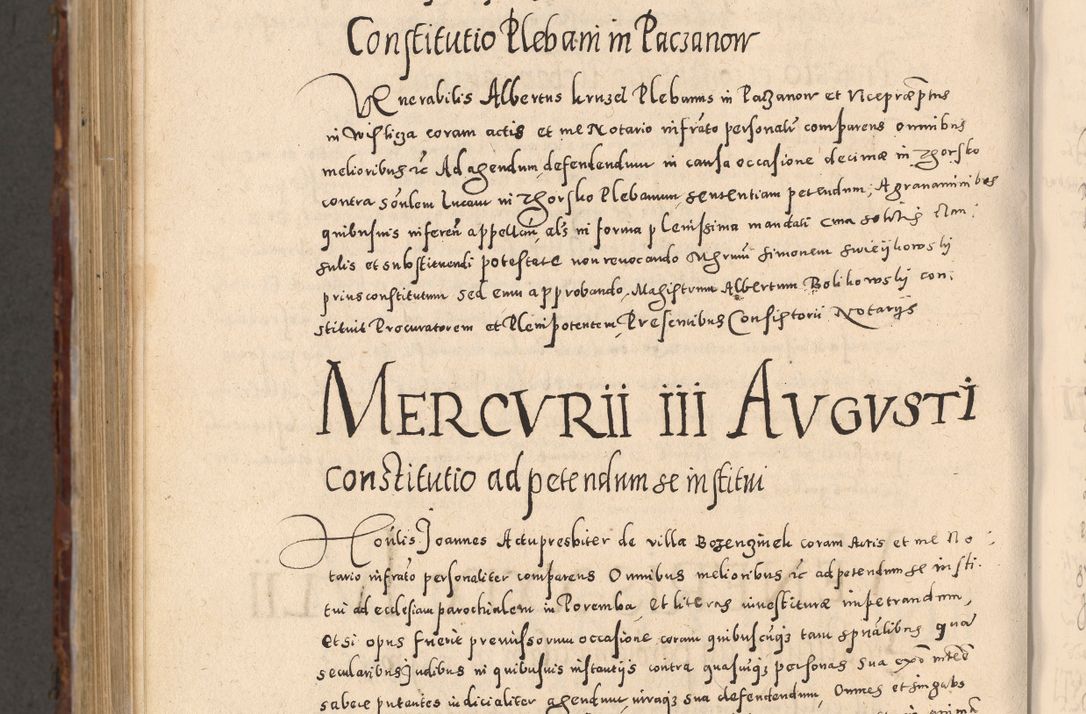 Constitutio Plebani in Paczanow
Venerabilis Albertus kruzel Plebanus in Paczanow et Vicepræptus
in Wislicza coram actis et me Notario infrato personalr comparens omnibus
melioribus rc Ad agendum, defendendum in causa occasione decimæ in zhorsko
contra Lucam in zhorsko Plebanum, sententiam petendum, A grauaminibus
quibusuis inferen appellan, als in forma plenissima mandati cum solitis clau
sulis et substituendi potestate non reuocando Mgrum Simonem Swieijkowskj
prius constitutum sed eum approbando, Magistrum Albertum Bolikowskj con:
stituit Procuratorem et Plenipotentem, Presentibus Consistorii Notarijs
MERCVRii iii AVGVSTi
Constitutio ad petendum se institui
Honlis Joannes Actupresbiter de villa coram Actis et me No
tario infrato personaliter comparens Omnibus melioribus rc ad petendum se insti:
tui ad ecclesiam parochialem in Poremba, et literas inuestituræ impetrandum,
et si opus fuerit premissorum occasione coram quibuscuqz tam spualibus qua
secularibus Judibus in quibusuis instantijs contra quasuiqz personas sua
sabere putentes iudicialiter agendum, iuraqz sua defendendum, Omnes et singulos